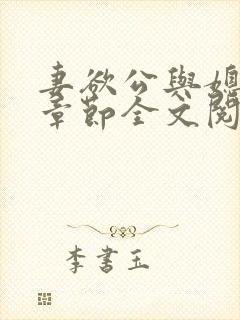 妻欲公與媳
章節全文閱
李書玉